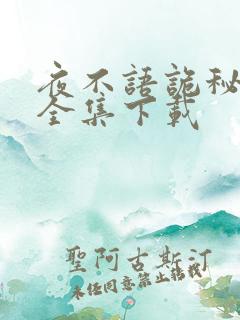 夜不語詭秘
全集下載
聖阿古斯汀
未经同意禁止转载